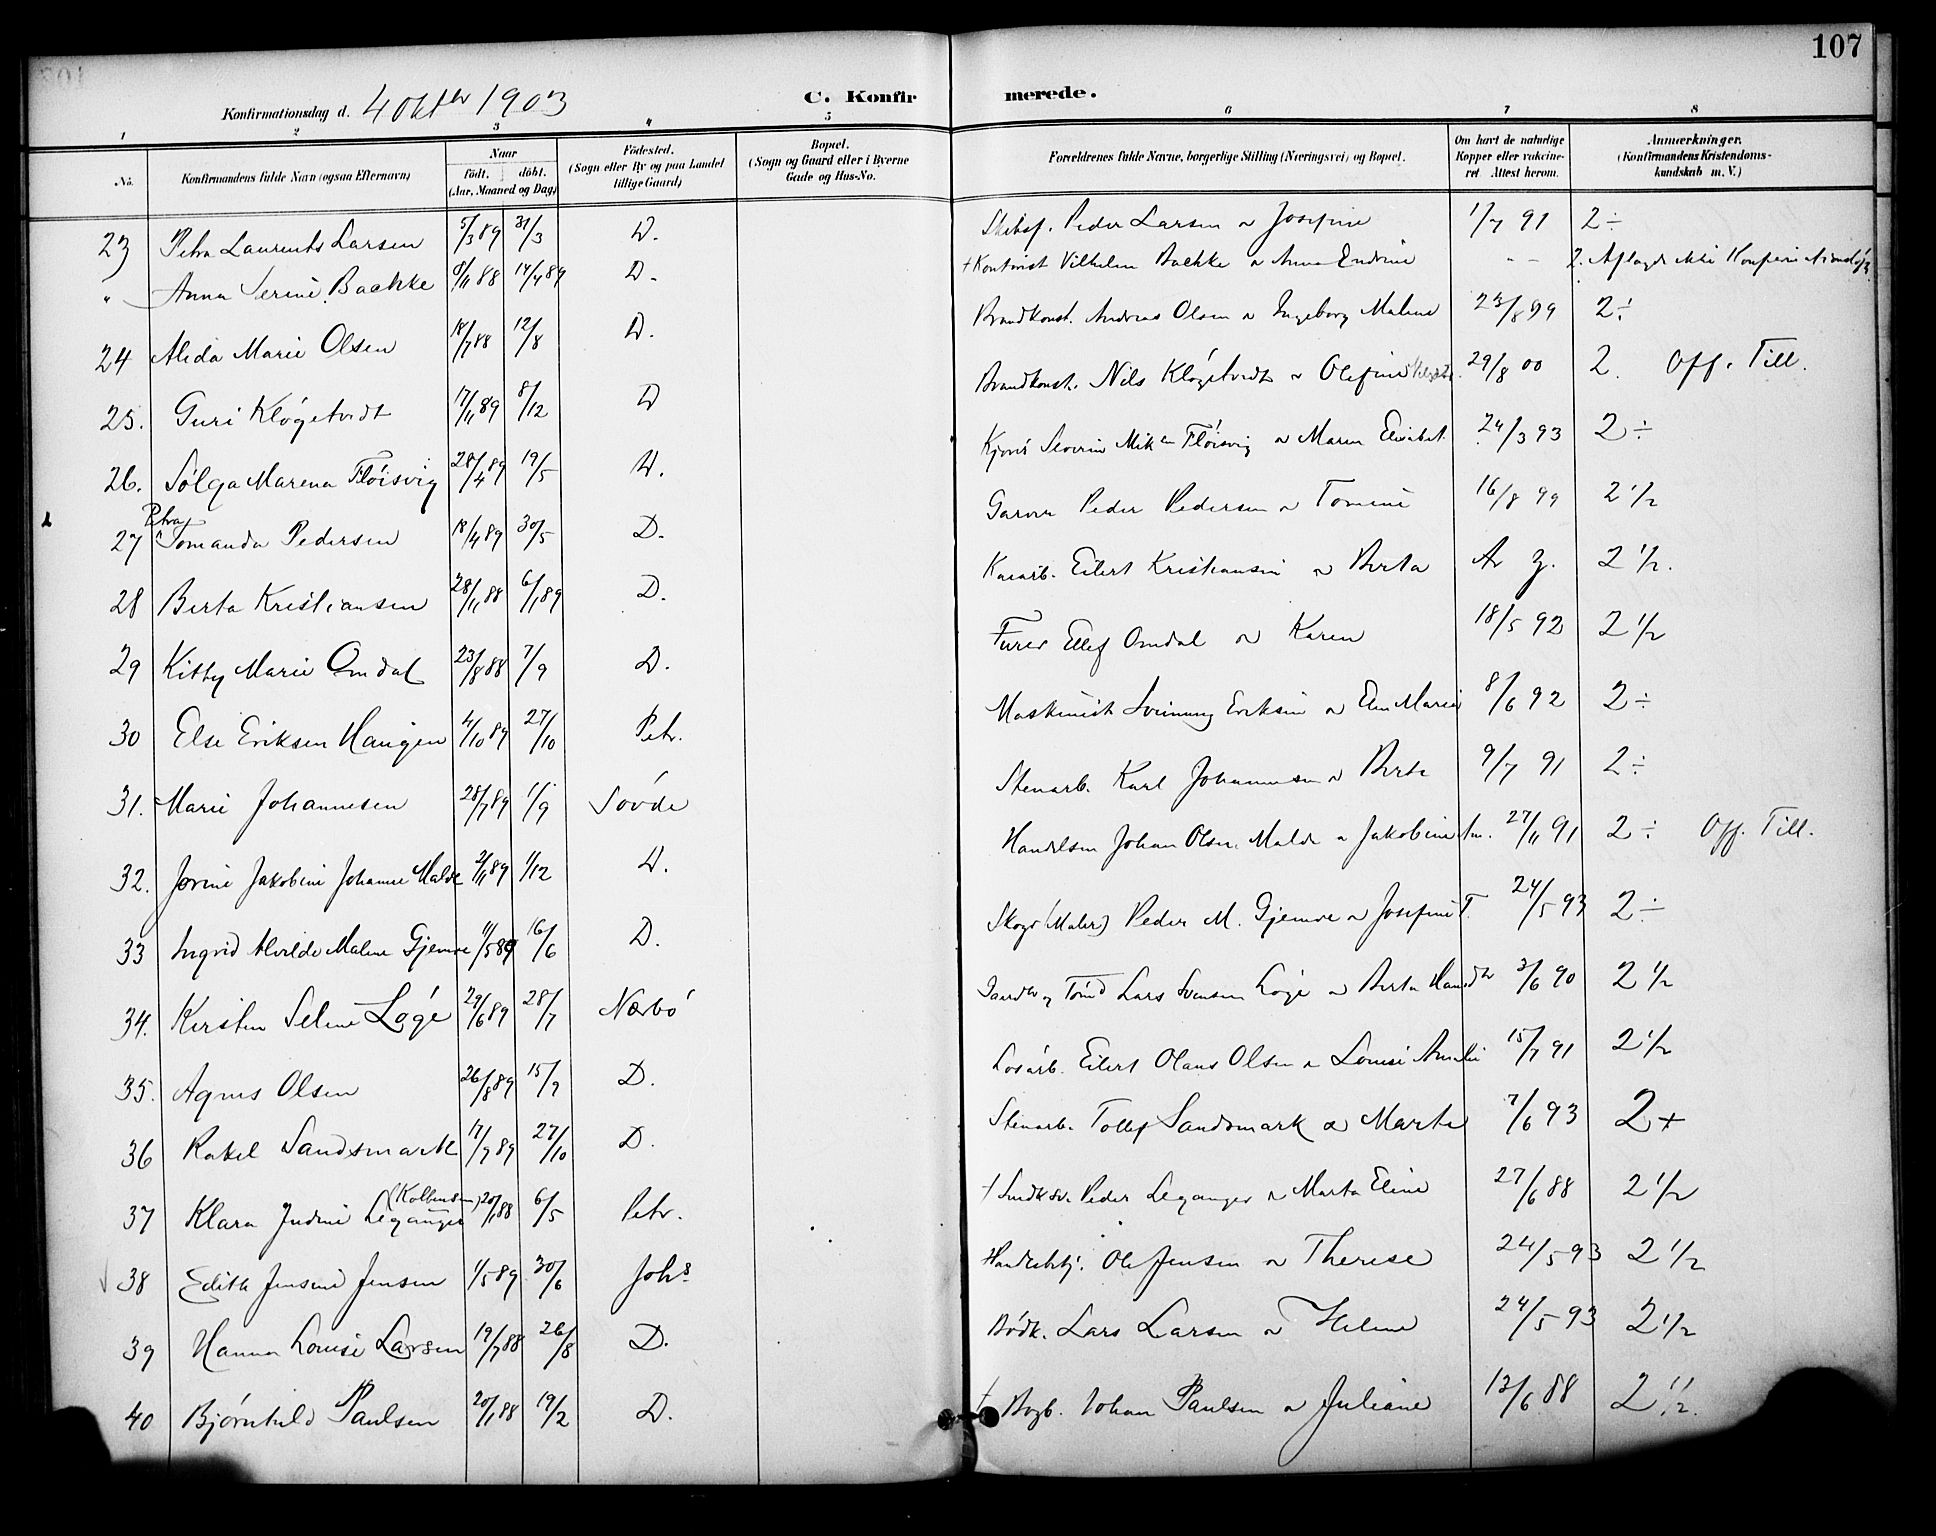 107
Konfirmationsdag d. 4 Oktbr 1903
C. Konfirmerede.
1 2 3 4 5 6 7 8
No. Konfirmandens fulde Navn (ogsaa Efternavn) Naar födt. döbt. (Aar, Maaned og Dag) Födested. (Sogn eller By og paa Landet tillige Gaard) Bopæl. (Sogn og Gaard eller i Byerne Gade og Hus-No. Forældrenes fulde Navne, borgerlige Stilling (Næringsvei) og Bopæl. Om havt de naturlige Kopper eller vakcineret. Attest herom. Anmærkninger. (Konfirmandens Kristendomskundskab m. V.)
23 Petra Laurents Larsen 5/3 89 31/3 D. Peder Larsen & Josefine 1/7 91 2÷
" Anna Serine Baekke 8/11 88 14/4 89 D. + Kontorist Vilhelm Baekke & Anna Endrine - - 2.
24 Alida Marie Olsen 18/7 88 12/8 D. Brandkonst. Andreas Olsen & Ingeborg Malene 23/8 99 2÷
25. Guri Kløgetvedt 17/11 89 8/12 D Brandkonst. Nils Kløgetvedt & Olefine 29/8 00 2. Off. Till.
26. Sølga Marena Fløisvig 28/4 89 19/5 D. Severin Mik Fløisvig & Maren Elisabet 24/3 93 2÷
27 Petra Tomanda Pedersen 18/4 89 30/5 D. Garver Peder Pedersen & Tomine 16/8 99 2 1/2
28 Berta Kristiansen 28/11 88 6/1 89 D. Eilert Kristiansen & Berta 2 1/2.
29 Kitty Marie Omdal 23/8 88 7/9 D. Furer Ellef Omdal & Karen 18/5 92 2 1/2
30 Else Eriksen Haugen 4/10 89 27/10 Petr. Maskinist Sveinung Eriksen & Elen Marie 8/6 92 2÷
31. Marie Johannesen 28/7 89 1/9 Søvde Stenarb. Karl Johannesen & Berte 9/7 91 2÷
32. Jørine Jakobine Johanne Malde 2/11 89 1/12 D. Handelsm Johan Olsen Malde & Jakobine 27/11 91 2÷ Off. Till.
33 Ingrid Alvilde Malene Gjemre 11/5 89 16/6 D. Skogs (Maler) Peder M. Gjemre & Josefine T. 24/5 93 2÷
34. Kirsten Selene Løge 29/6 89 28/7 Nærbø Lars Svensen Løge & Berta 3/6 90 2 1/2
35. Agnes Olsen 26/8 89 15/9 D. Løsarb. Eilert Olaus Olsen & Louise Amalie 15/7 91 2 1/2
36 Rakel Sandsmark 17/9 89 27/10 D. Stenarb. Tollef Sandsmark & Marte 7/6 93 2+
37 Klara Judine Leganger (Kolbensen) 20/1 88 6/5 Petr. + Peder Leganger & Marta Eline 27/6 88 2 1/2
38 Edith Jensine Jensen 1/5 89 30/6 Johs Ole Jensen & Therese 24/5 93 2 1/2
39 Hanna Louise Larsen 19/7 88 26/8 D. Bødk. Lars Larsen & Helene 24/5 93 2 1/2
40 Bjørnhild Paulsen 20/1 88 19/2 D. + Johan Paulsen & Juliane 13/6 88 2 1/2.